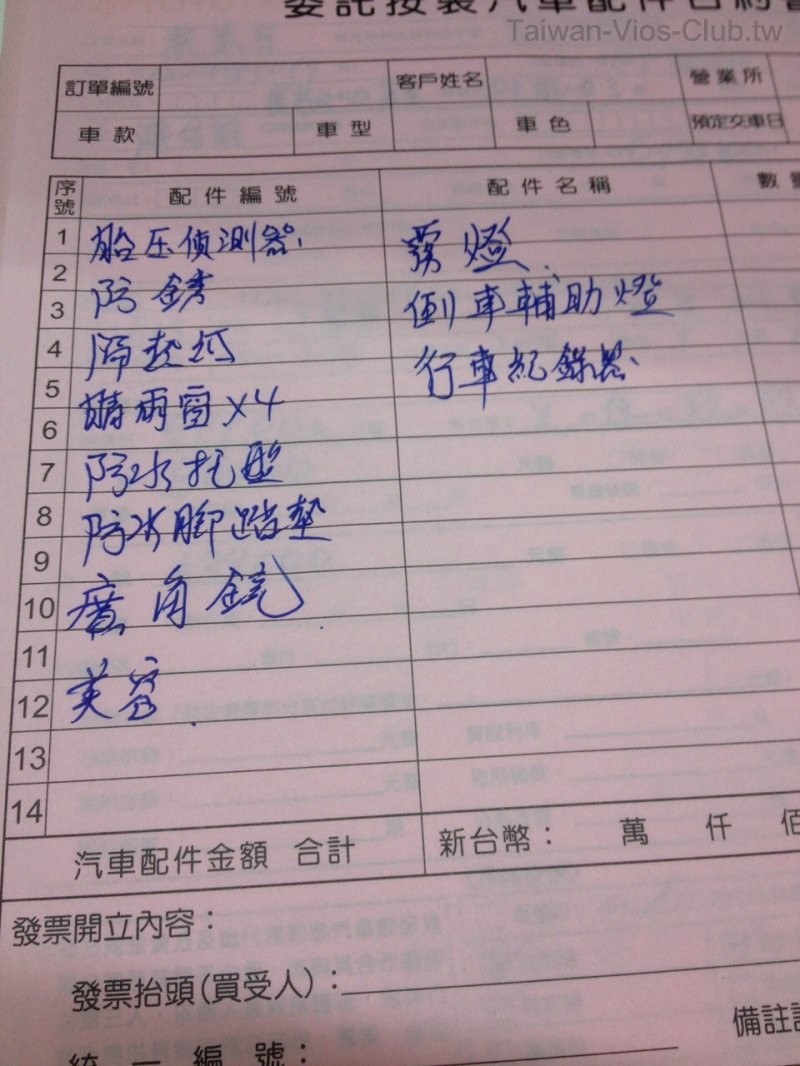 委託按裝汽車配件合約書
Taiwan-Vios-Club.tw
訂單編號 客戶姓名 營業所
車款 車型 車色 預定交車日
序號 配件編號 配件名稱 數
1 胎压偵測器 霧燈
2
3 防銹 倒車輔助燈
4 隔熱紙 行車紀錄器
5
6 晴雨窗x4
7 防水托盤
8 防水腳踏墊
9
10 廣角鏡
11
12 美容
13
14
汽車配件金額 合計 新台幣： 萬 仟 佰
發票開立內容：
發票抬頭(買受人)：
備註
統一編號：